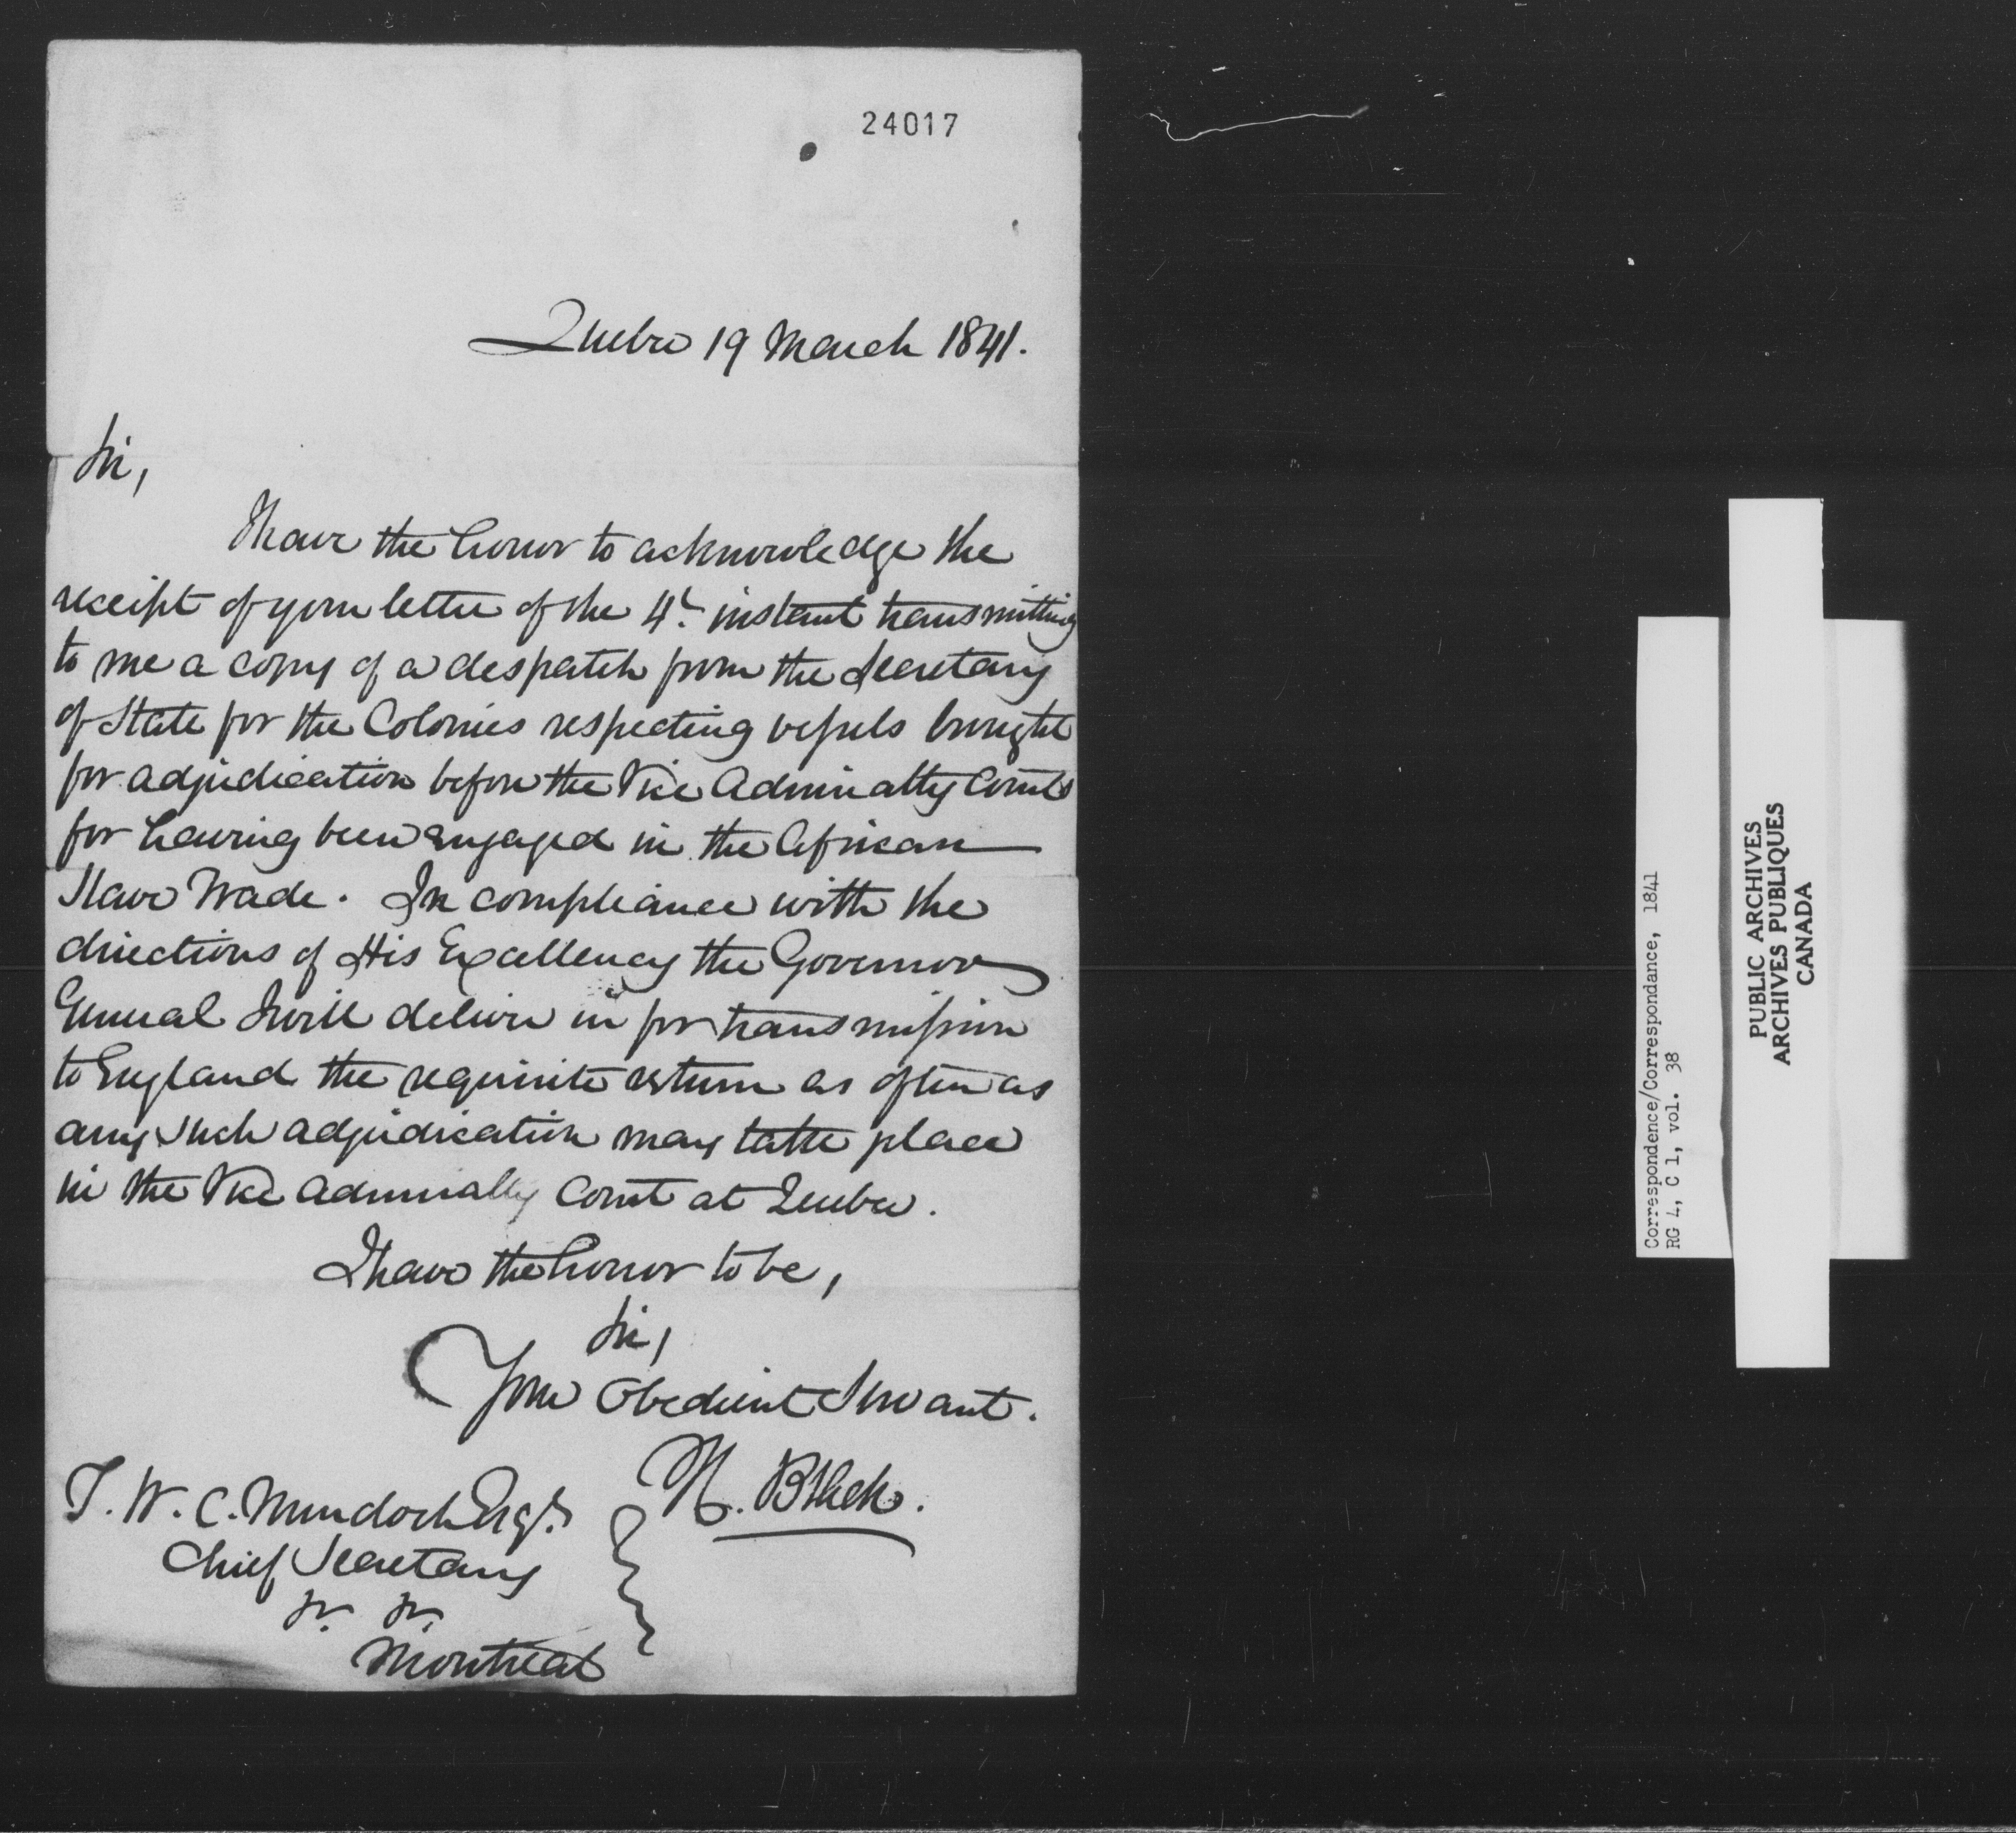 24017
Quebec 19 March 1841.
Sir,
I have the honor to acknowledge the
receipt of your letter of the 4th instant transmitting
to me a copy of a despatch from the Secretary
of State for the Colonies respecting vessels brought
for adjudication before the Vice Admiralty Courts
for having been engaged in the African
Slave Trade. In compliance with the
directions of His Excellency the Governor
General I will deliver in for transmission
to England the requisite return as often as
any such adjudication may take place
in the Vice Admiralty Court at Quebec.
I have the honor to be,
Sir,
Your Obedient Servant.
H. Black.
T. W. C. Murdoch Esqr.
Chief Secretary
&c. &c.
Montreal
Correspondence/Correspondance, 1841
RG 4, C 1, vol. 38
PUBLIC ARCHIVES
ARCHIVES PUBLIQUES
CANADA